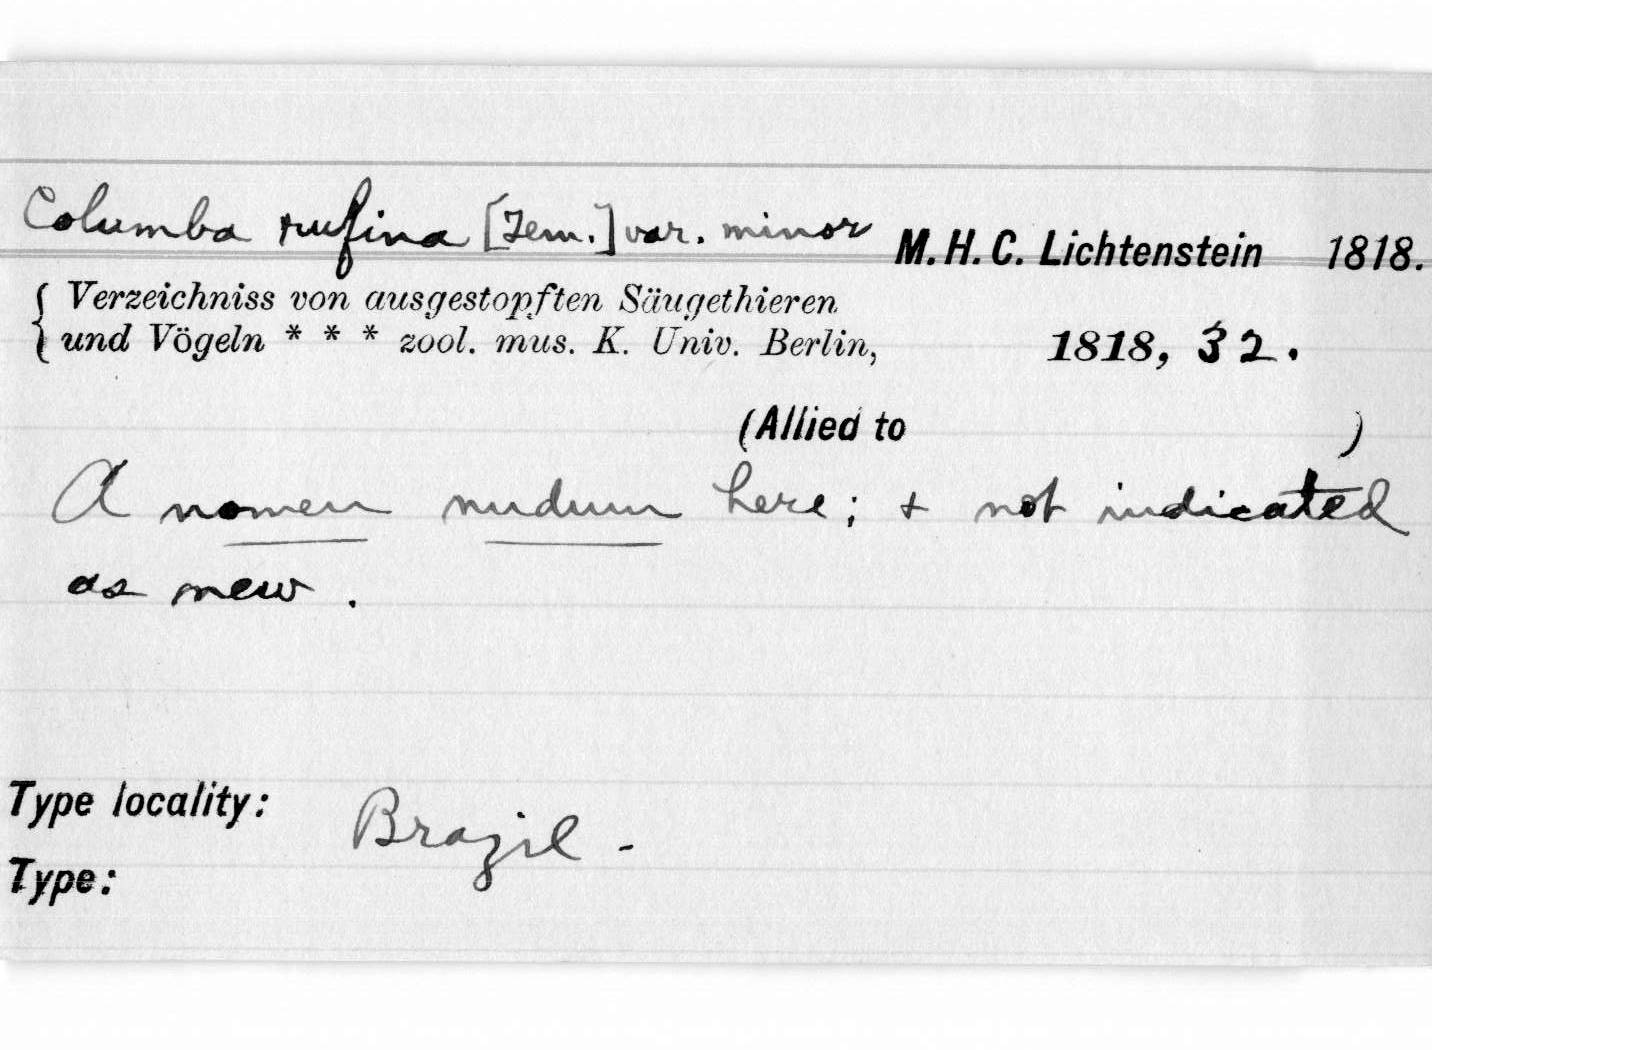 Columba rufina [Tem.] var. minor M. H. C. Lichtenstein 1818.
{ Verzeichniss von ausgestopften Säugethieren
und Vögeln * * * zool. mus. K. Univ. Berlin, 1818, 32.
(Allied to )
A nomen nudum here; + not indicated
as new.
Type locality: Brazil -
Type: